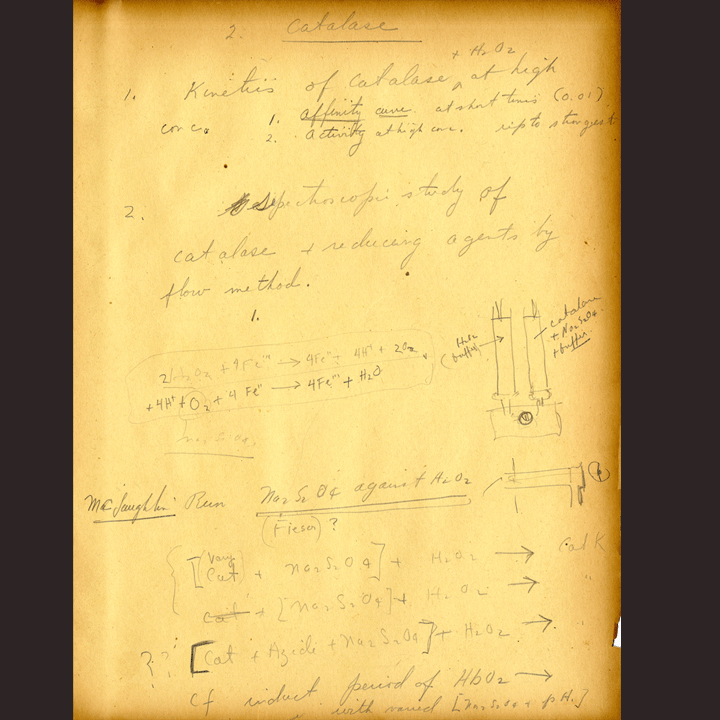 2. Catalase
+ H2O2
1. Kinetics of catalase ^ at high
conc.
1. affinity curve. at short times (0.01)
2. activity at high conc. up to strongest
2. Spectroscopic study of
catalase + reducing agents by
flow method.
1.
H2O2
(buffer)
catalase
+ Na2S2O4
+ buffer.
2H2O2 + 4Fe''' → 4Fe'' + 4H+ + 2O2
+4H+ + O2 + 4 Fe'' → 4Fe''' + H2O
Na2S2O4
McLaughlin Run Na2S2O4 against H2O2
(Fieser) ?
[(vary) Cat + Na2S2O4] + H2O2 → Cat K
cat + [Na2S2O4] + H2O2 → "
?? [Cat + Azide + Na2S2O4] + H2O2 → "
Cf induct period of HbO2 →
with varied [Na2S2O4 + pH.]